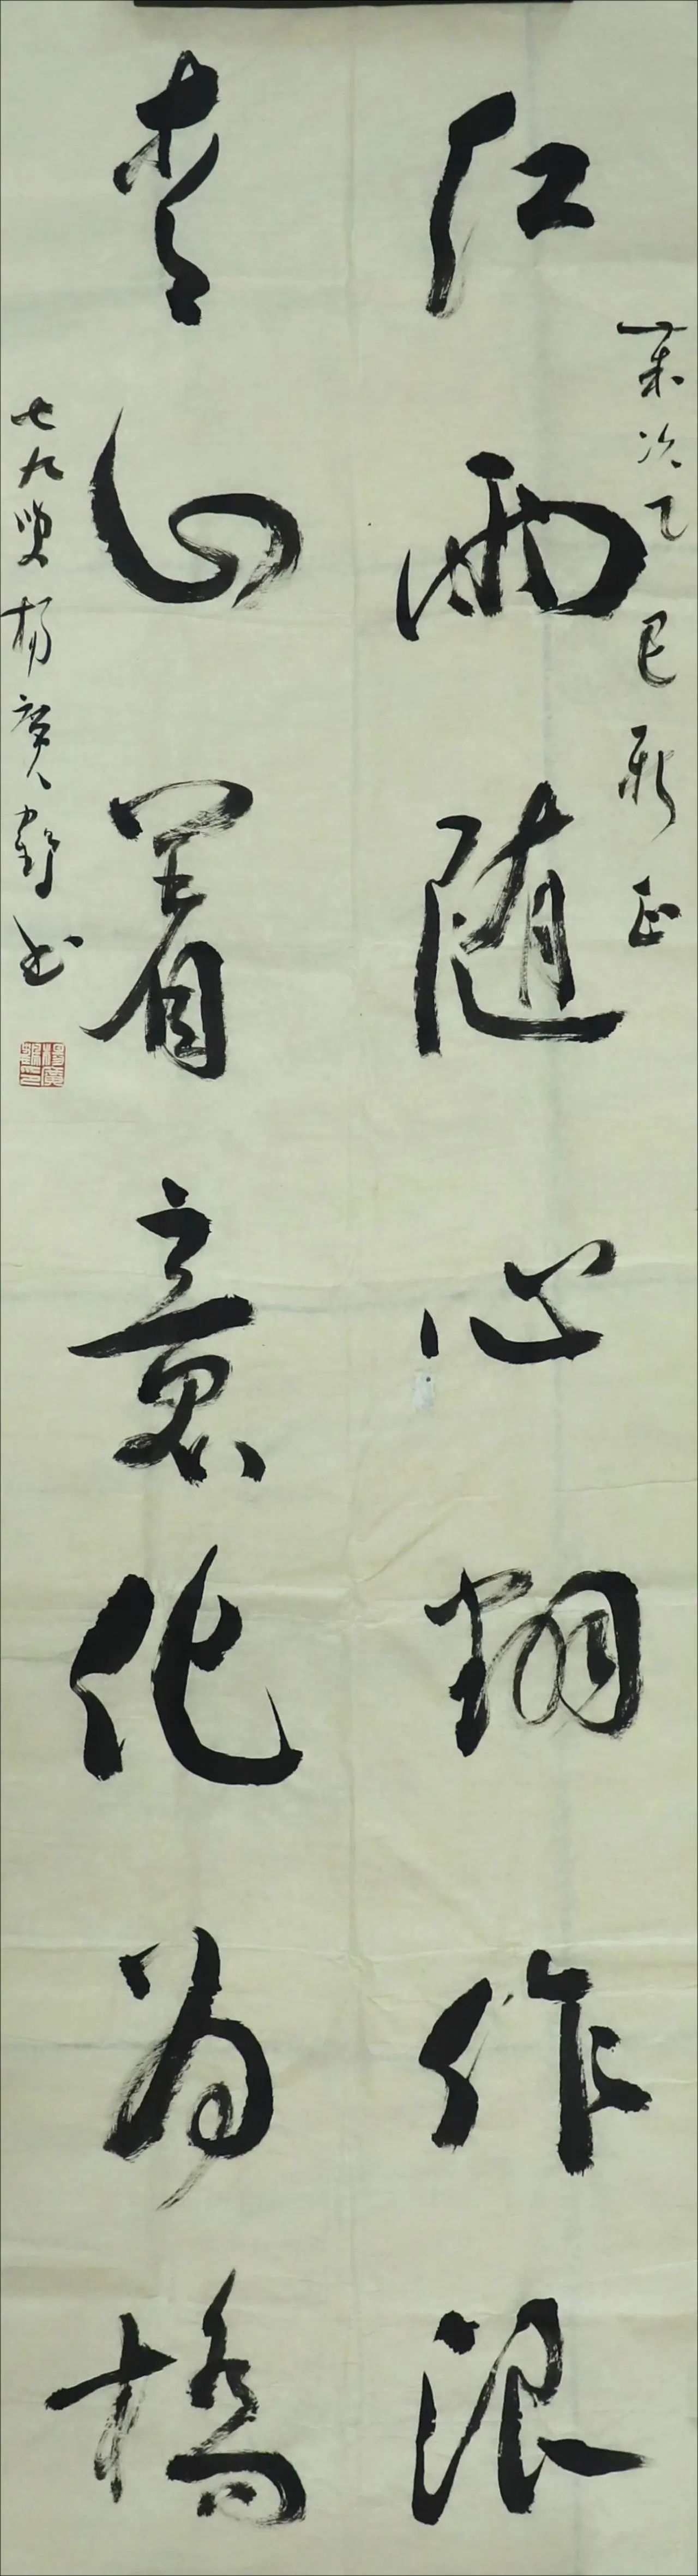 岁次乙巳新正
红雨随心翻作浪
青山着意化为桥
七九叟杨广群书